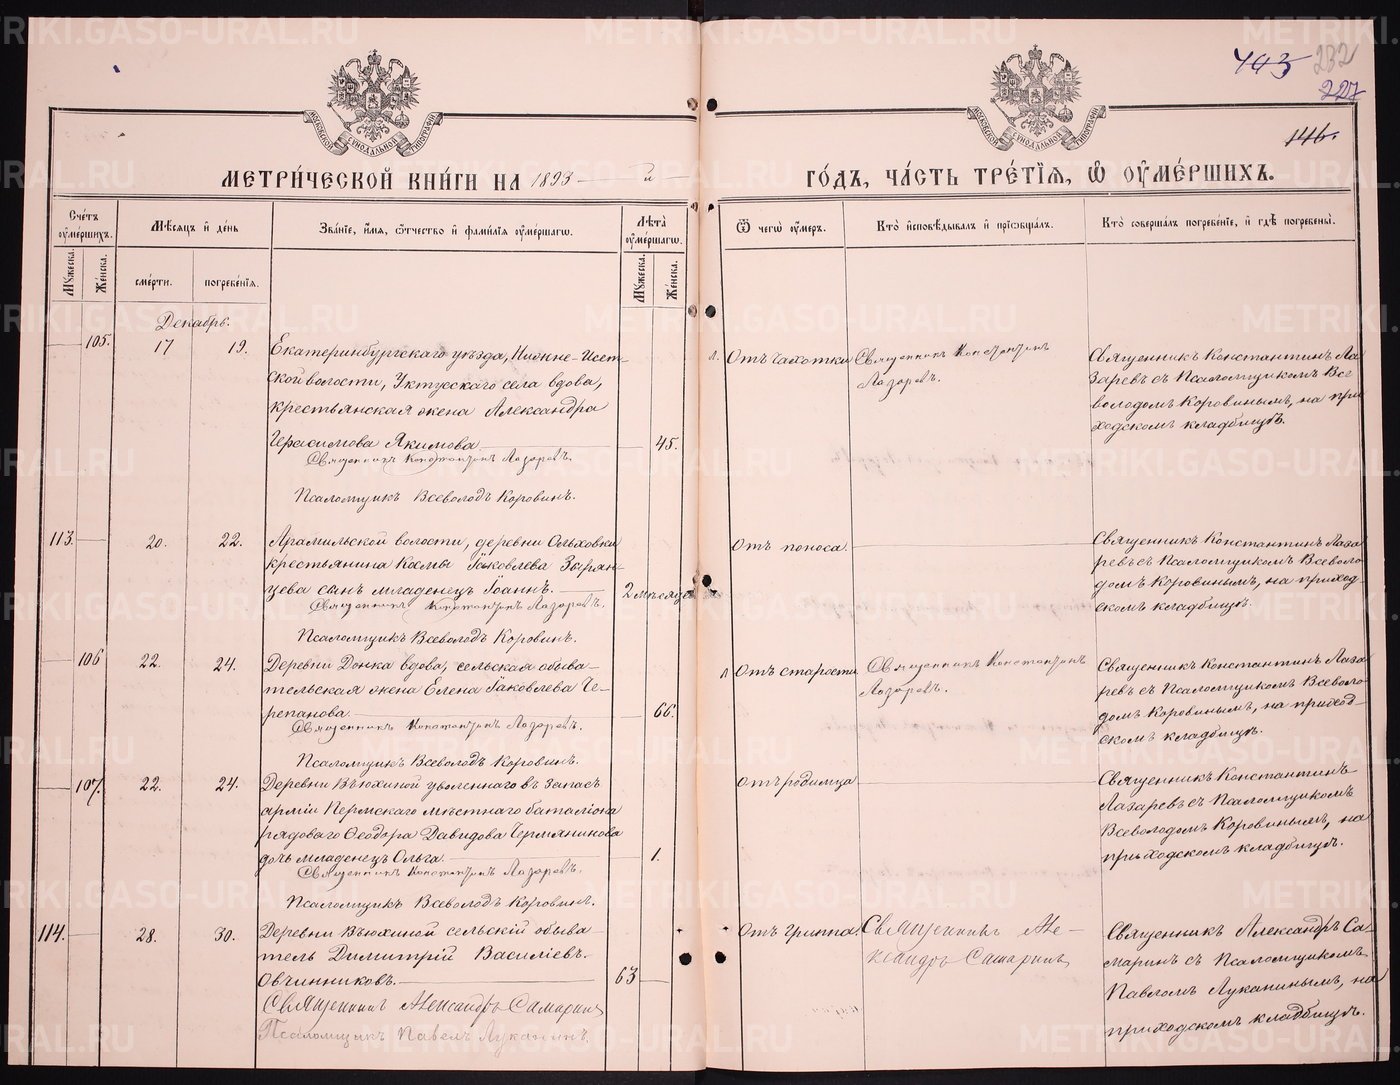 403 232
227
146.
МОСКОВСКОЙ СѴНОДАЛЬНОЙ ТИПОГРАФІИ
МОСКОВСКОЙ СѴНОДАЛЬНОЙ ТИПОГРАФІИ
МЕТРИ́ЧЕСКОЙ КНИ́ГИ НА 1893 — й —
ГО́ДЪ, ЧА́СТЬ ТРЕ́ТІѦ, Ѽ ОУМЕ́РШИХЪ.
Сче́тъ оуме́ршихъ.
Мꙋ́жеска.
Же́нска.
Мѣ́сѧцъ и҆ де́нь
сме́рти.
погребе́нїѧ.
Зва́нїе, и҆́мѧ, ѻ҆́тчество и҆ фами́лїѧ оуме́ршагѡ.
Лѣ́та оуме́ршагѡ.
Мꙋ́жеска.
Же́нска.
Ѿ чегѡ̀ оу́меръ.
Кто̀ и҆сповѣ́дывалъ и҆ прїѡбща́лъ.
Кто̀ соверша́лъ погребе́нїе, и҆ гдѣ̀ погребены̀.
Декабрь.
105. 17 19.
Екатеринбургскаго уѣзда, Нижне-Исет-
ской волости, Уктусскаго села вдова,
крестьянская жена Александра
Герасимова Якимова 45.
Священникъ Константинъ Лазаревъ.
Псаломщикъ Всеволодъ Коровинъ.
л. Отъ чахотки
Священникъ Константинъ
Лазаревъ.
Священникъ Константинъ Ла-
заревъ съ Псаломщикомъ Все-
володомъ Коровинымъ, на при-
ходскомъ кладбищѣ.
113. 20. 22.
Арамильской волости, деревни Ольховки
крестьянина Космы Іаковлева Зырян-
цева сынъ младенецъ Іоаннъ. 2 мѣсяца
Священникъ Константинъ Лазаревъ.
Псаломщикъ Всеволодъ Коровинъ.
Отъ поноса.
Священникъ Константинъ Лаза-
ревъ съ Псаломщикомъ Всеволо-
домъ Коровинымъ, на приход-
скомъ кладбищѣ.
106 22. 24.
Деревни Донка вдова, сельская обыва-
тельская жена Елена Іаковлева Че-
репанова 66.
Священникъ Константинъ Лазаревъ.
Псаломщикъ Всеволодъ Коровинъ.
л Отъ старости
Священникъ Константинъ
Лазаревъ.
Священникъ Константинъ Лаза-
ревъ съ Псаломщикомъ Всеволо-
домъ Коровинымъ, на приход-
скомъ кладбищѣ.
107. 22. 24.
Деревни Вьюхиной уволеннаго въ запасъ
арміи Пермскаго мѣстнаго баталіона
рядоваго Ѳеодора Давидова Чермянинова
дочь младенецъ Ольга. 1.
Священникъ Константинъ Лазаревъ.
Псаломщикъ Всеволодъ Коровинъ.
Отъ родимца
Священникъ Константинъ
Лазаревъ съ Псаломщикомъ
Всеволодомъ Коровинымъ, на
приходскомъ кладбищѣ.
114. 28. 30.
Деревни Вьюхиной сельскій обыва-
тель Димитрій Василіевъ
Овчинниковъ. 63
Священникъ Александръ Самаринъ
Псаломщикъ Павелъ Луканинъ.
Отъ гриппа.
Священникъ Але-
ксандръ Самаринъ
Священникъ Александръ Са-
маринъ съ Псаломщикомъ
Павломъ Луканинымъ, на
приходскомъ кладбищѣ.
METRIKI.GASO-URAL.RU